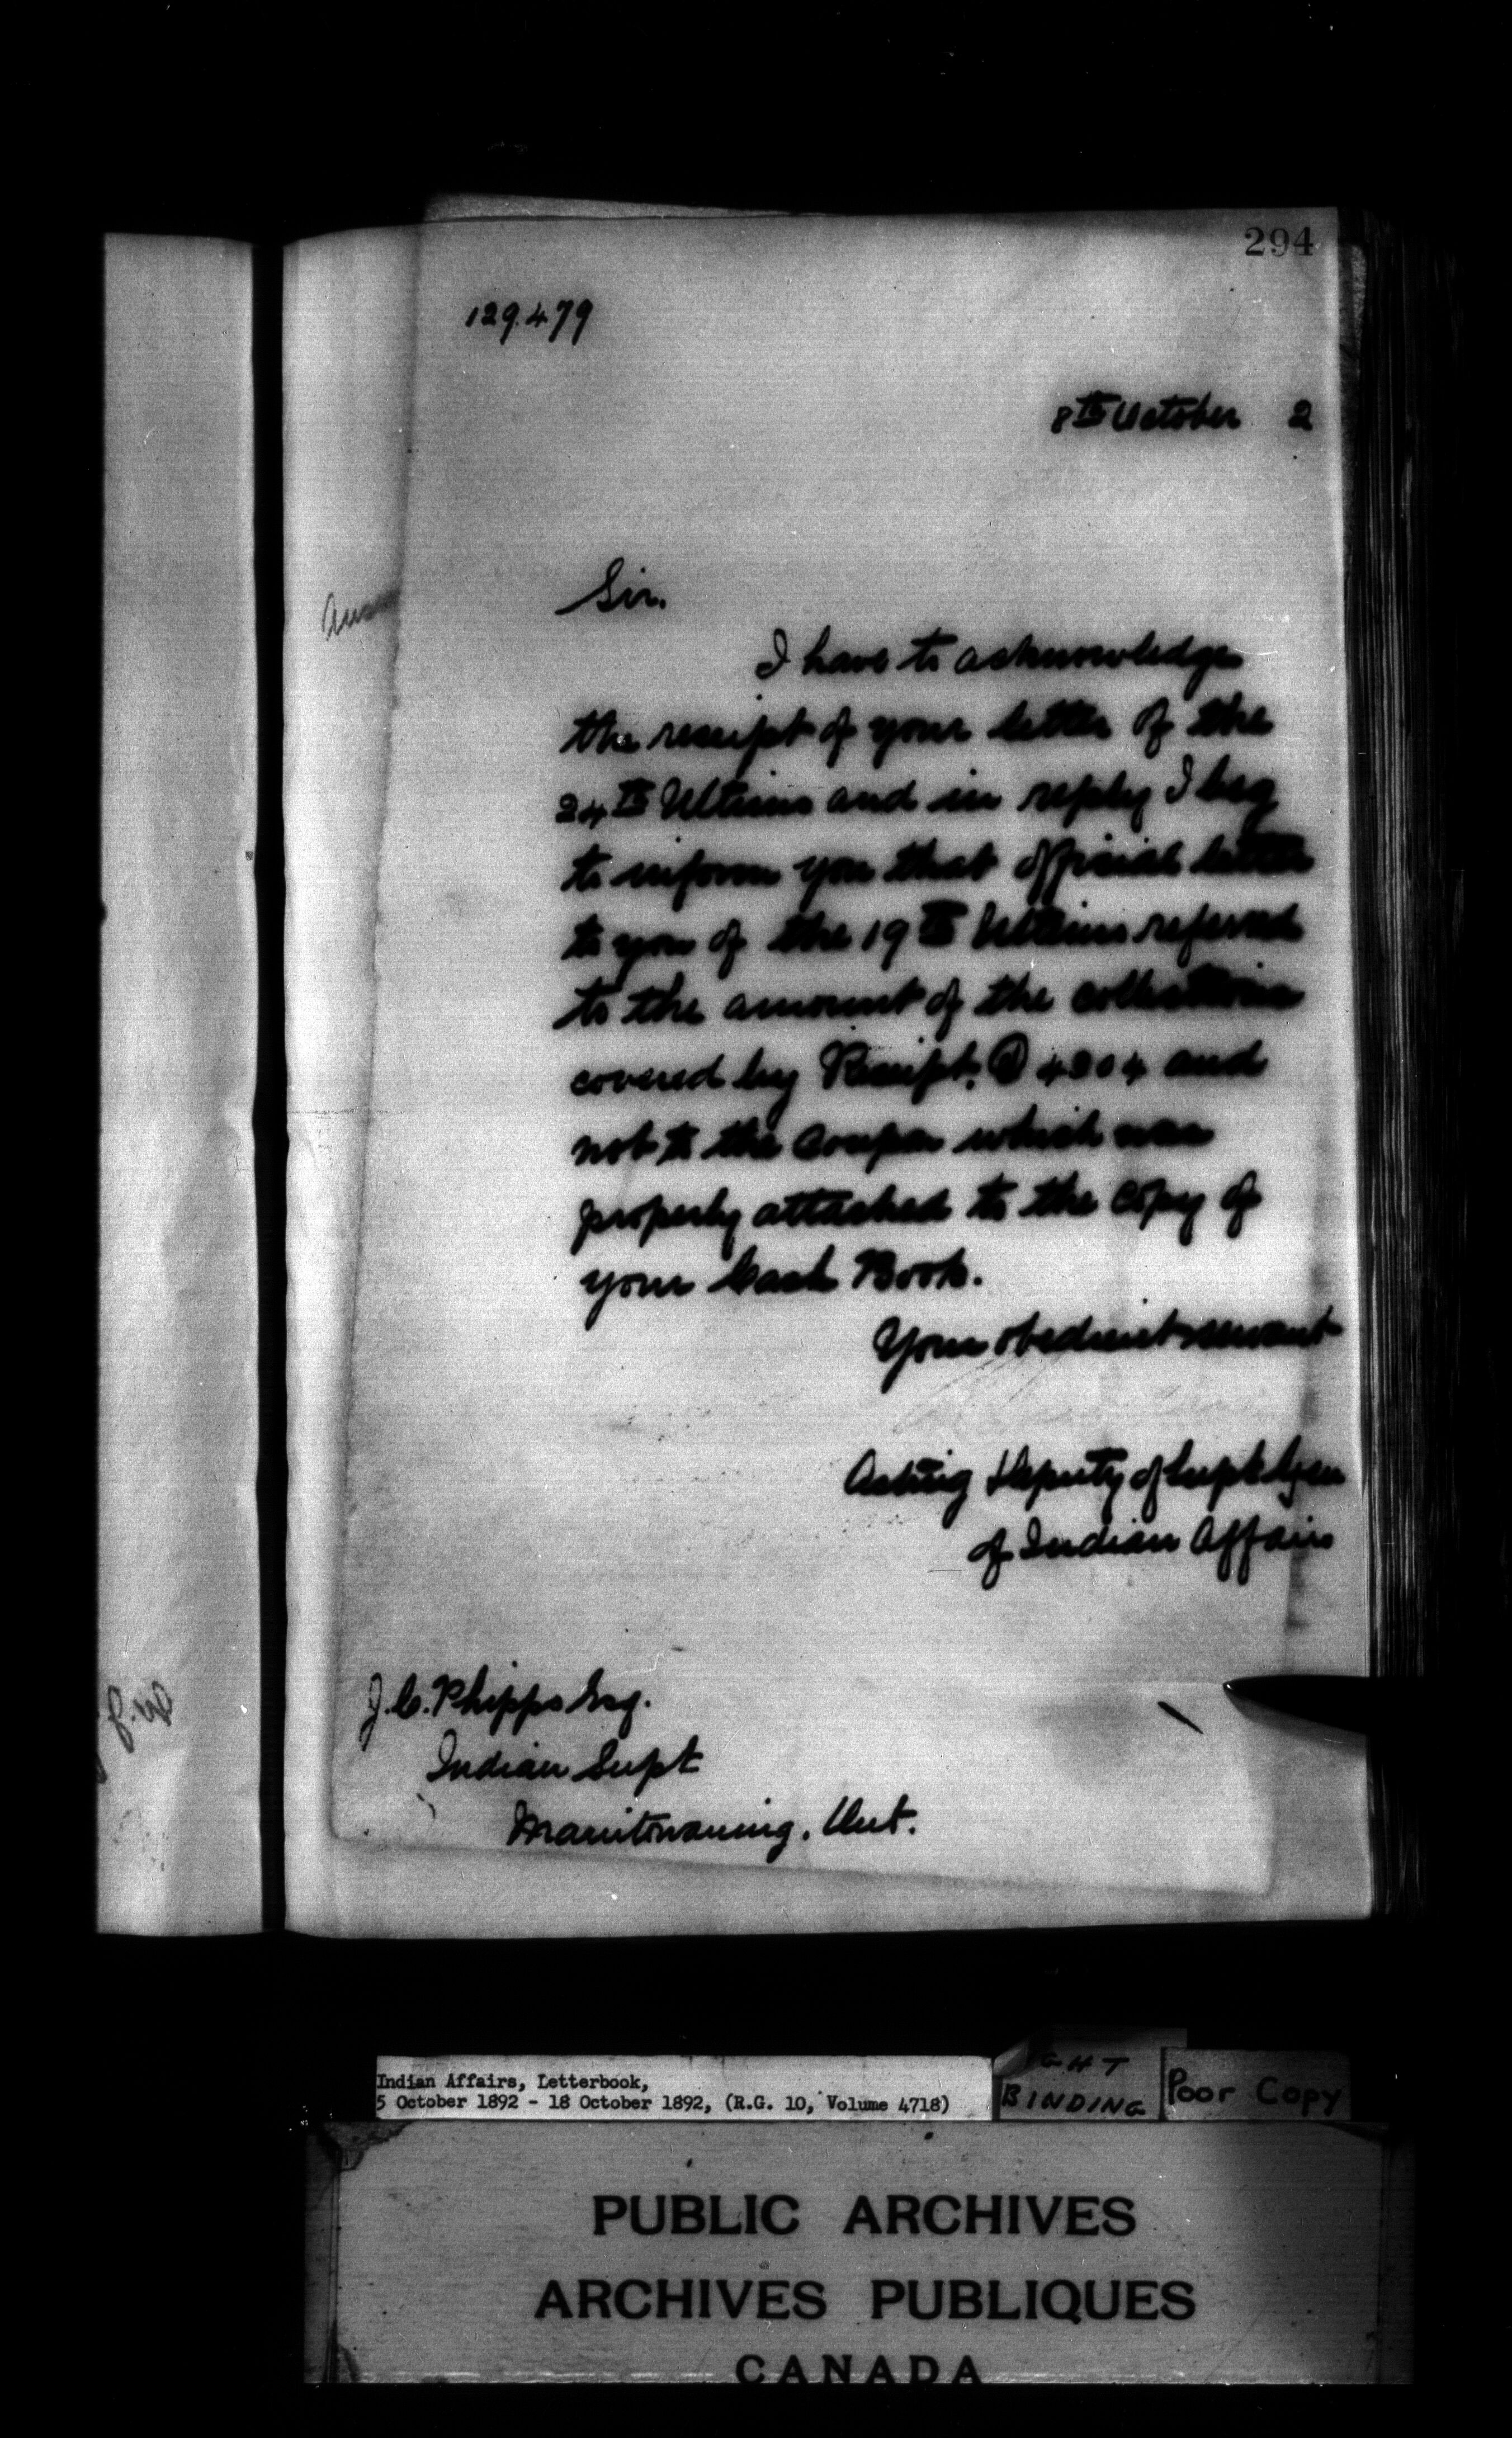 294
129.479
8th October 2
Sir.
I have to acknowledge
the receipt of your letter of the
24th Ultimo and in reply I beg
to inform you that official letter
to you of the 19th Ultimo referred
to the amount of the collections
covered by Receipt. 4304 and
not to the Coupon which was
properly attached to the copy of
your Cash Book.
Your obedient servant
Acting Deputy of Supt Gen
of Indian Affairs
J.C. Phipps Esq.
Indian Supt
Manitowaning. Ont.
Indian Affairs, Letterbook,
5 October 1892 - 18 October 1892, (R.G. 10, Volume 4718)
GHT
BINDING
Poor Copy
PUBLIC ARCHIVES
ARCHIVES PUBLIQUES
CANADA